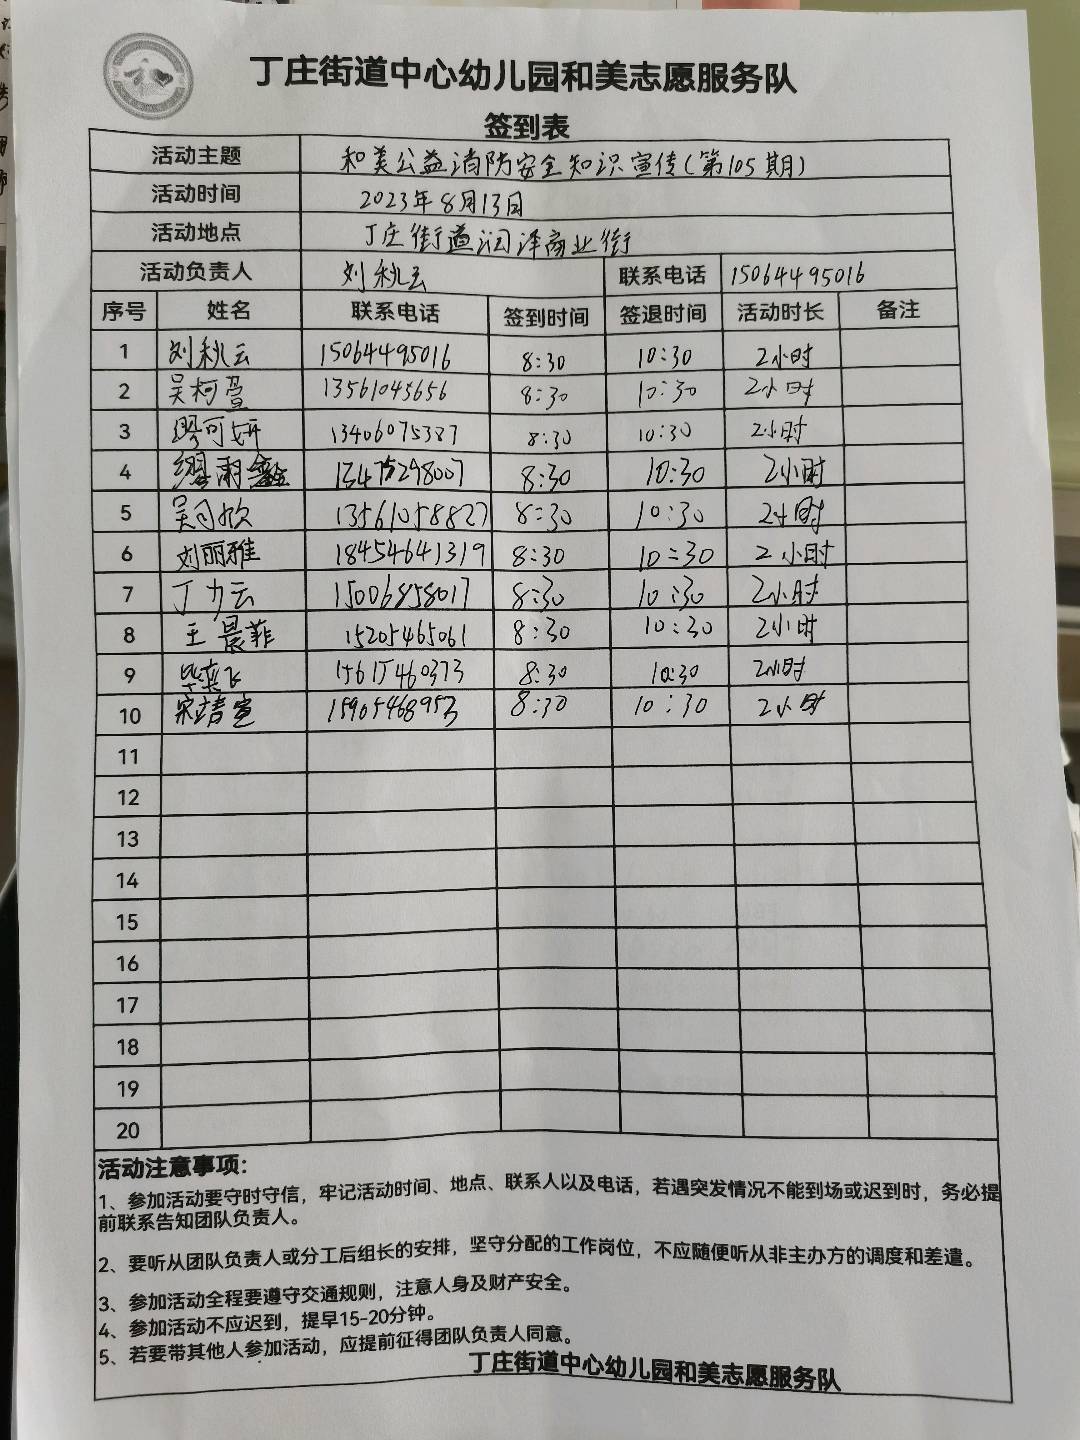 丁庄街道中心幼儿园和美志愿服务队
签到表
活动主题 和美公益消防安全知识宣传(第105期)
活动时间 2023年8月13日
活动地点 丁庄街道润泽商业街
活动负责人 刘秋云 联系电话 15064495016
序号 姓名 联系电话 签到时间 签退时间 活动时长 备注
1 刘秋云 15064495016 8:30 10:30 2小时
2 吴柯萱 13561045656 8:30 10:30 2小时
3 缪可妍 13406075387 8:30 10:30 2小时
4 缪雨 13475298007 8:30 10:30 2小时
5 吴可欣 13561058827 8:30 10:30 2小时
6 刘丽雅 18454641319 8:30 10:30 2小时
7 丁力云 15006858017 8:30 10:30 2小时
8 王晨菲 15205465061 8:30 10:30 2小时
9 毕奕飞 15615460373 8:30 10:30 2小时
10 宋靖萱 15905468953 8:30 10:30 2小时
11
12
13
14
15
16
17
18
19
20
活动注意事项：
1、参加活动要守时守信，牢记活动时间、地点、联系人以及电话，若遇突发情况不能到场或迟到时，务必提
前联系告知团队负责人。
2、要听从团队负责人或分工后组长的安排，坚守分配的工作岗位，不应随便听从非主办方的调度和差遣。
3、参加活动全程要遵守交通规则，注意人身及财产安全。
4、参加活动不应迟到，提早15-20分钟。
5、若要带其他人参加活动，应提前征得团队负责人同意。
丁庄街道中心幼儿园和美志愿服务队